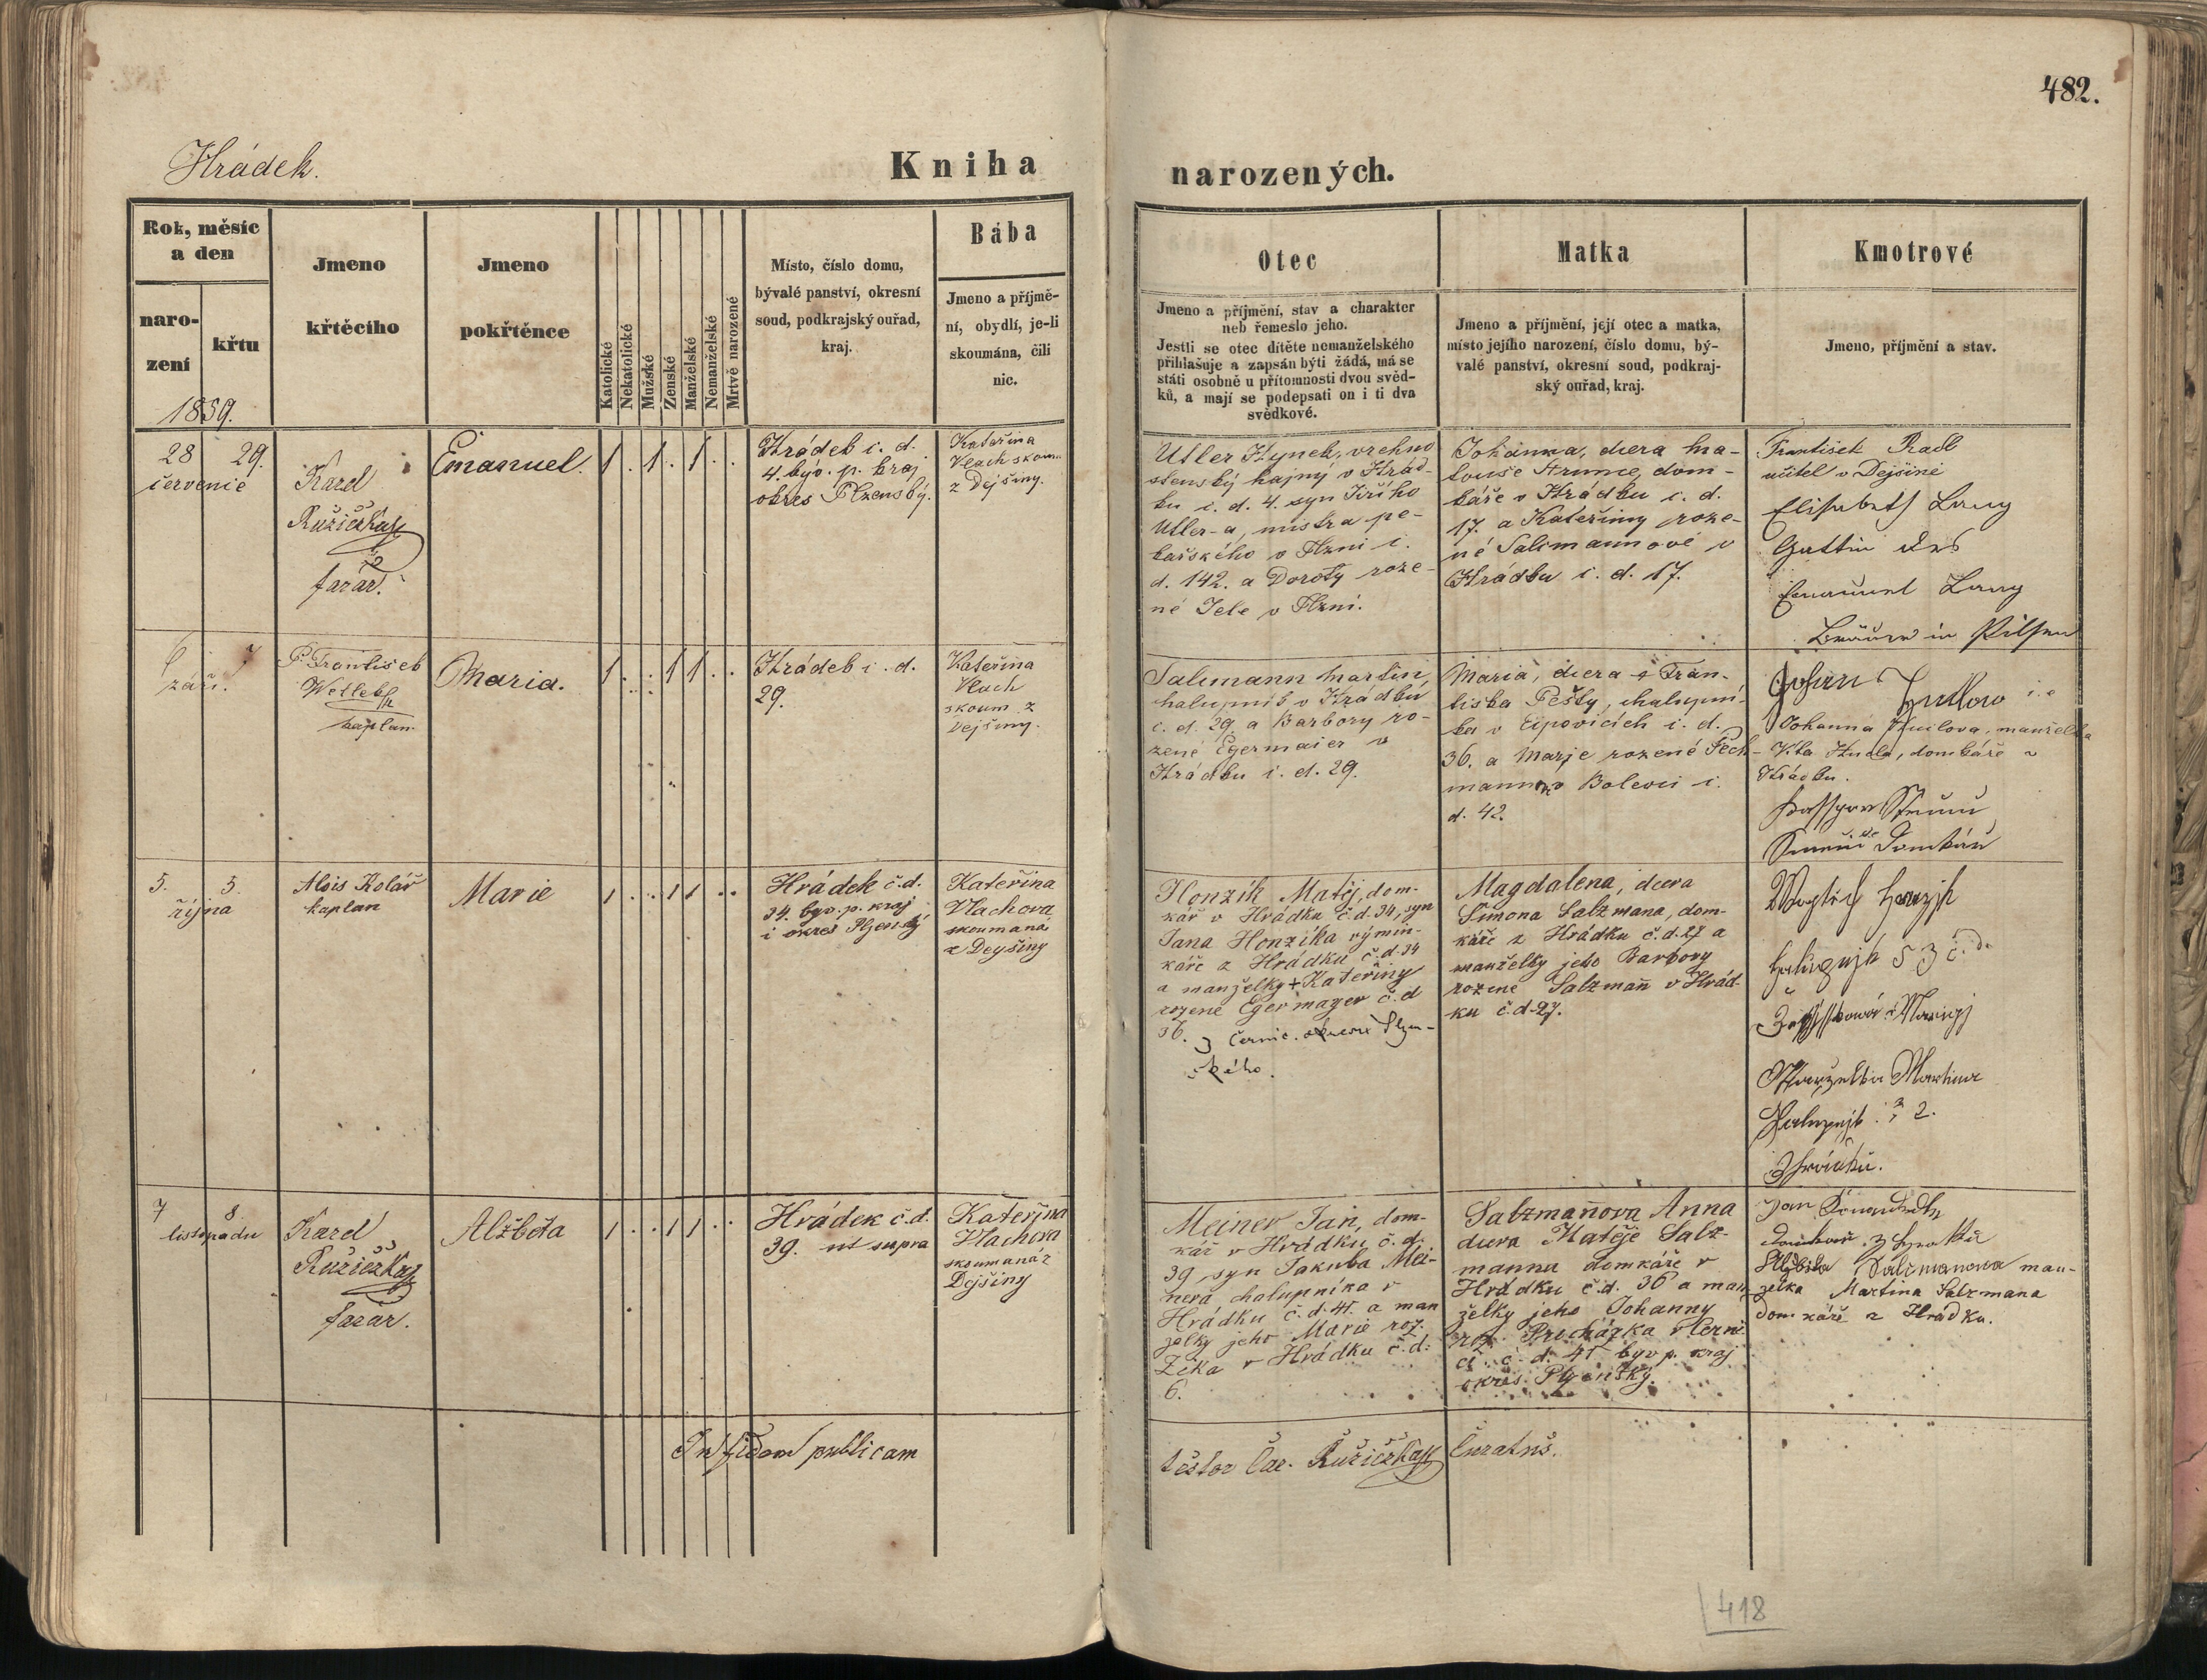 482.
Hrádek.
Kniha
narozených.
Rok, měsíc
a den
naro-
zení
křtu
1859.
Jmeno
křtěcího
Jmeno
pokřtěnce
Katolické
Nekatolické
Mužské
Ženské
Manželské
Nemanželské
Mrtvě narozené
Místo, číslo domu,
bývalé panství, okresní
soud, podkrajský ouřad,
kraj.
Bába
Jmeno a příjmě-
ní, obydlí, je-li
skoumána, čili
nic.
Otec
Jmeno a příjmění, stav a charakter
neb řemeslo jeho.
Jestli se otec dítěte nemanželského
přihlašuje a zapsán býti žádá, má se
státi osobně u přítomnosti dvou svěd-
ků, a mají se podepsati on i ti dva
svědkové.
Matka
Jmeno a příjmění, její otec a matka,
místo jejího narození, číslo domu, bý-
valé panství, okresní soud, podkraj-
ský ouřad, kraj.
Kmotrové
Jmeno, příjmění a stav.
28 29.
července
Karel
Růžiczka
farář.
Emanuel.
1 . 1 . 1 . .
Hrádek č. d.
4. býv. p. kraj
okres Plzenský.
Kateřina
Vlach skoum.
z Dejšiny.
Utler Hynek, vrchno
stenský hajný v Hrád-
ku č. d. 4. syn Jiřího
Utler-a, mistra pe-
kařského v Plzni č.
d. 142. a Doroty roze-
né Jele v Plzni.
Johanna, dcera Ma-
touše dom-
káře v Hrádku č. d.
17. a Kateřiny roze-
né Salcmannové v
Hrádku č. d. 17.
František Radl
učitel v Dejšině
Elisabeth Lang
Gattin des
Emanuel Lang
Bräuer in Pilsen
6 7
září.
P. František
Wetlek
kaplan.
Maria.
1 . . 1 1 . .
Hrádek č. d.
29.
Kateřina
Vlach
skoum. z
Dejšiny.
Salcmann Martin,
halupník v Hrádku
č. d. 29. a Barbory ro-
zené Egermaier v
Hrádku č. d. 29.
Maria, dcera Fran-
tiska Pešty, chalupní-
ka v Ejpovicích č. d.
36. a Marje rozené Pech-
mann v Bolevci č.
d. 42.
Johanna manželka
Víta domkáře v
Hrádku.
5. 5.
října
Alois Kolář
kaplan
Marie
1 . . 1 1 . .
Hrádek č.d.
34. byv. p. kraj
i okres Plzenský
Kateřina
Vlachova
skoumaná
z Dejšiny
Honzík Matěj, dom-
kář v Hrádku č.d. 34, syn
Jana Honzíka výmin-
káře z Hrádku č.d. 34
a manželky + Kateřiny
rozené Egermayer č.d
36. z Černic. okresu Plzen-
ského.
Magdalena, dcera
Šimona Salzmana, dom-
káře z Hrádku č.d. 27 a
manželky jeho Barbory
rozene Salzmañ v Hrád-
ku č.d. 27.
Manželka Martina
z Hrádku.
7 8.
listopadu
Karel
Růžiczka
farar.
Alžběta
1 . . 1 1 . .
Hrádek č.d.
39. ut supra
Kateřina
Vlachova
skoumaná z
Dejšiny
Meiner Jan, dom-
kář v Hrádku č. d.
39 syn Jakuba Mei-
nera chalupníka v
Hrádku č.d. 41. a man
želky jeho Marie roz.
Zíka v Hrádku č.d.
6.
Salzmañova Anna
dcera Matěje Salz-
manna domkáře v
Hrádku č.d. 36 a man
želky jeho Johanny
roz. Procházka v Černi
ci č. d. 41 byv p. kraj
okres. Plzenský.
Jan
domkář z Hrádku
Alžběta Salcmanova man-
želka Martina Salzmana
domkáře z Hrádku.
In fidem publicam
testor Car. Růžiczka Curatus.
418